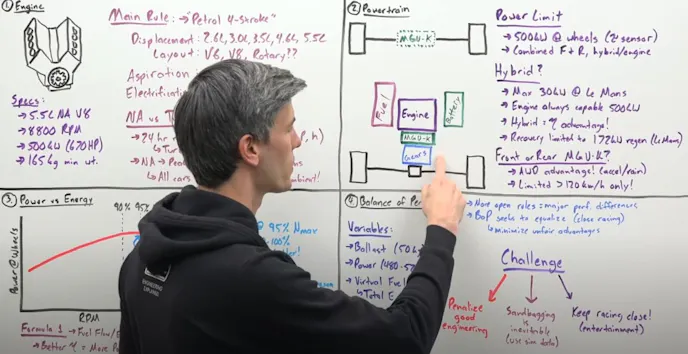 ① Engine
Main Rule: → "Petrol 4-Stroke"
Displacement: 2.6L, 3.0L, 3.5L, 4.6L, 5.5L
Layout: V6, V8, Rotary??
Aspiration
Electrification
Specs:
→ 5.5L NA V8
→ 8800 RPM
→ 500kW (670HP)
→ 165kg min wt.
NA vs
→ 24 hr
→ NA →
All cars
② Powertrain
MGU-K
Fuel
Engine
Battery
MGU-K
Gears
Power Limit
→ 500kW @ wheels (2x sensor)
→ Combined F + R, hybrid/engine
Hybrid?
→ Max 30kW @ Le Mans
→ Engine always capable 500kW
→ Hybrid = η advantage!
→ Recovery limited to 172kW regen (Le Mans)
Front or Rear MGU-K?
→ AWD advantage! (accel/rain)
→ Limited >120 km/h only!
③ Power vs Energy
90% 95%
Power @ Wheels
RPM
@ 95% Nmax
-100%
Formula 1 → Fuel Flow/
→ Better η = More
④ Balance of
→ More open rules = major perf. differences
→ BoP seeks to equalize (close racing)
↳ minimize unfair advantages
Variables:
→ Ballast (50
→ Power (480-
→ Virtual
↳ Total E
Challenge
Penalize good engineering
Sandbagging is inevitable (use sim data)
Keep racing close! (entertainment)
ENGINEERING
EXPLAINED